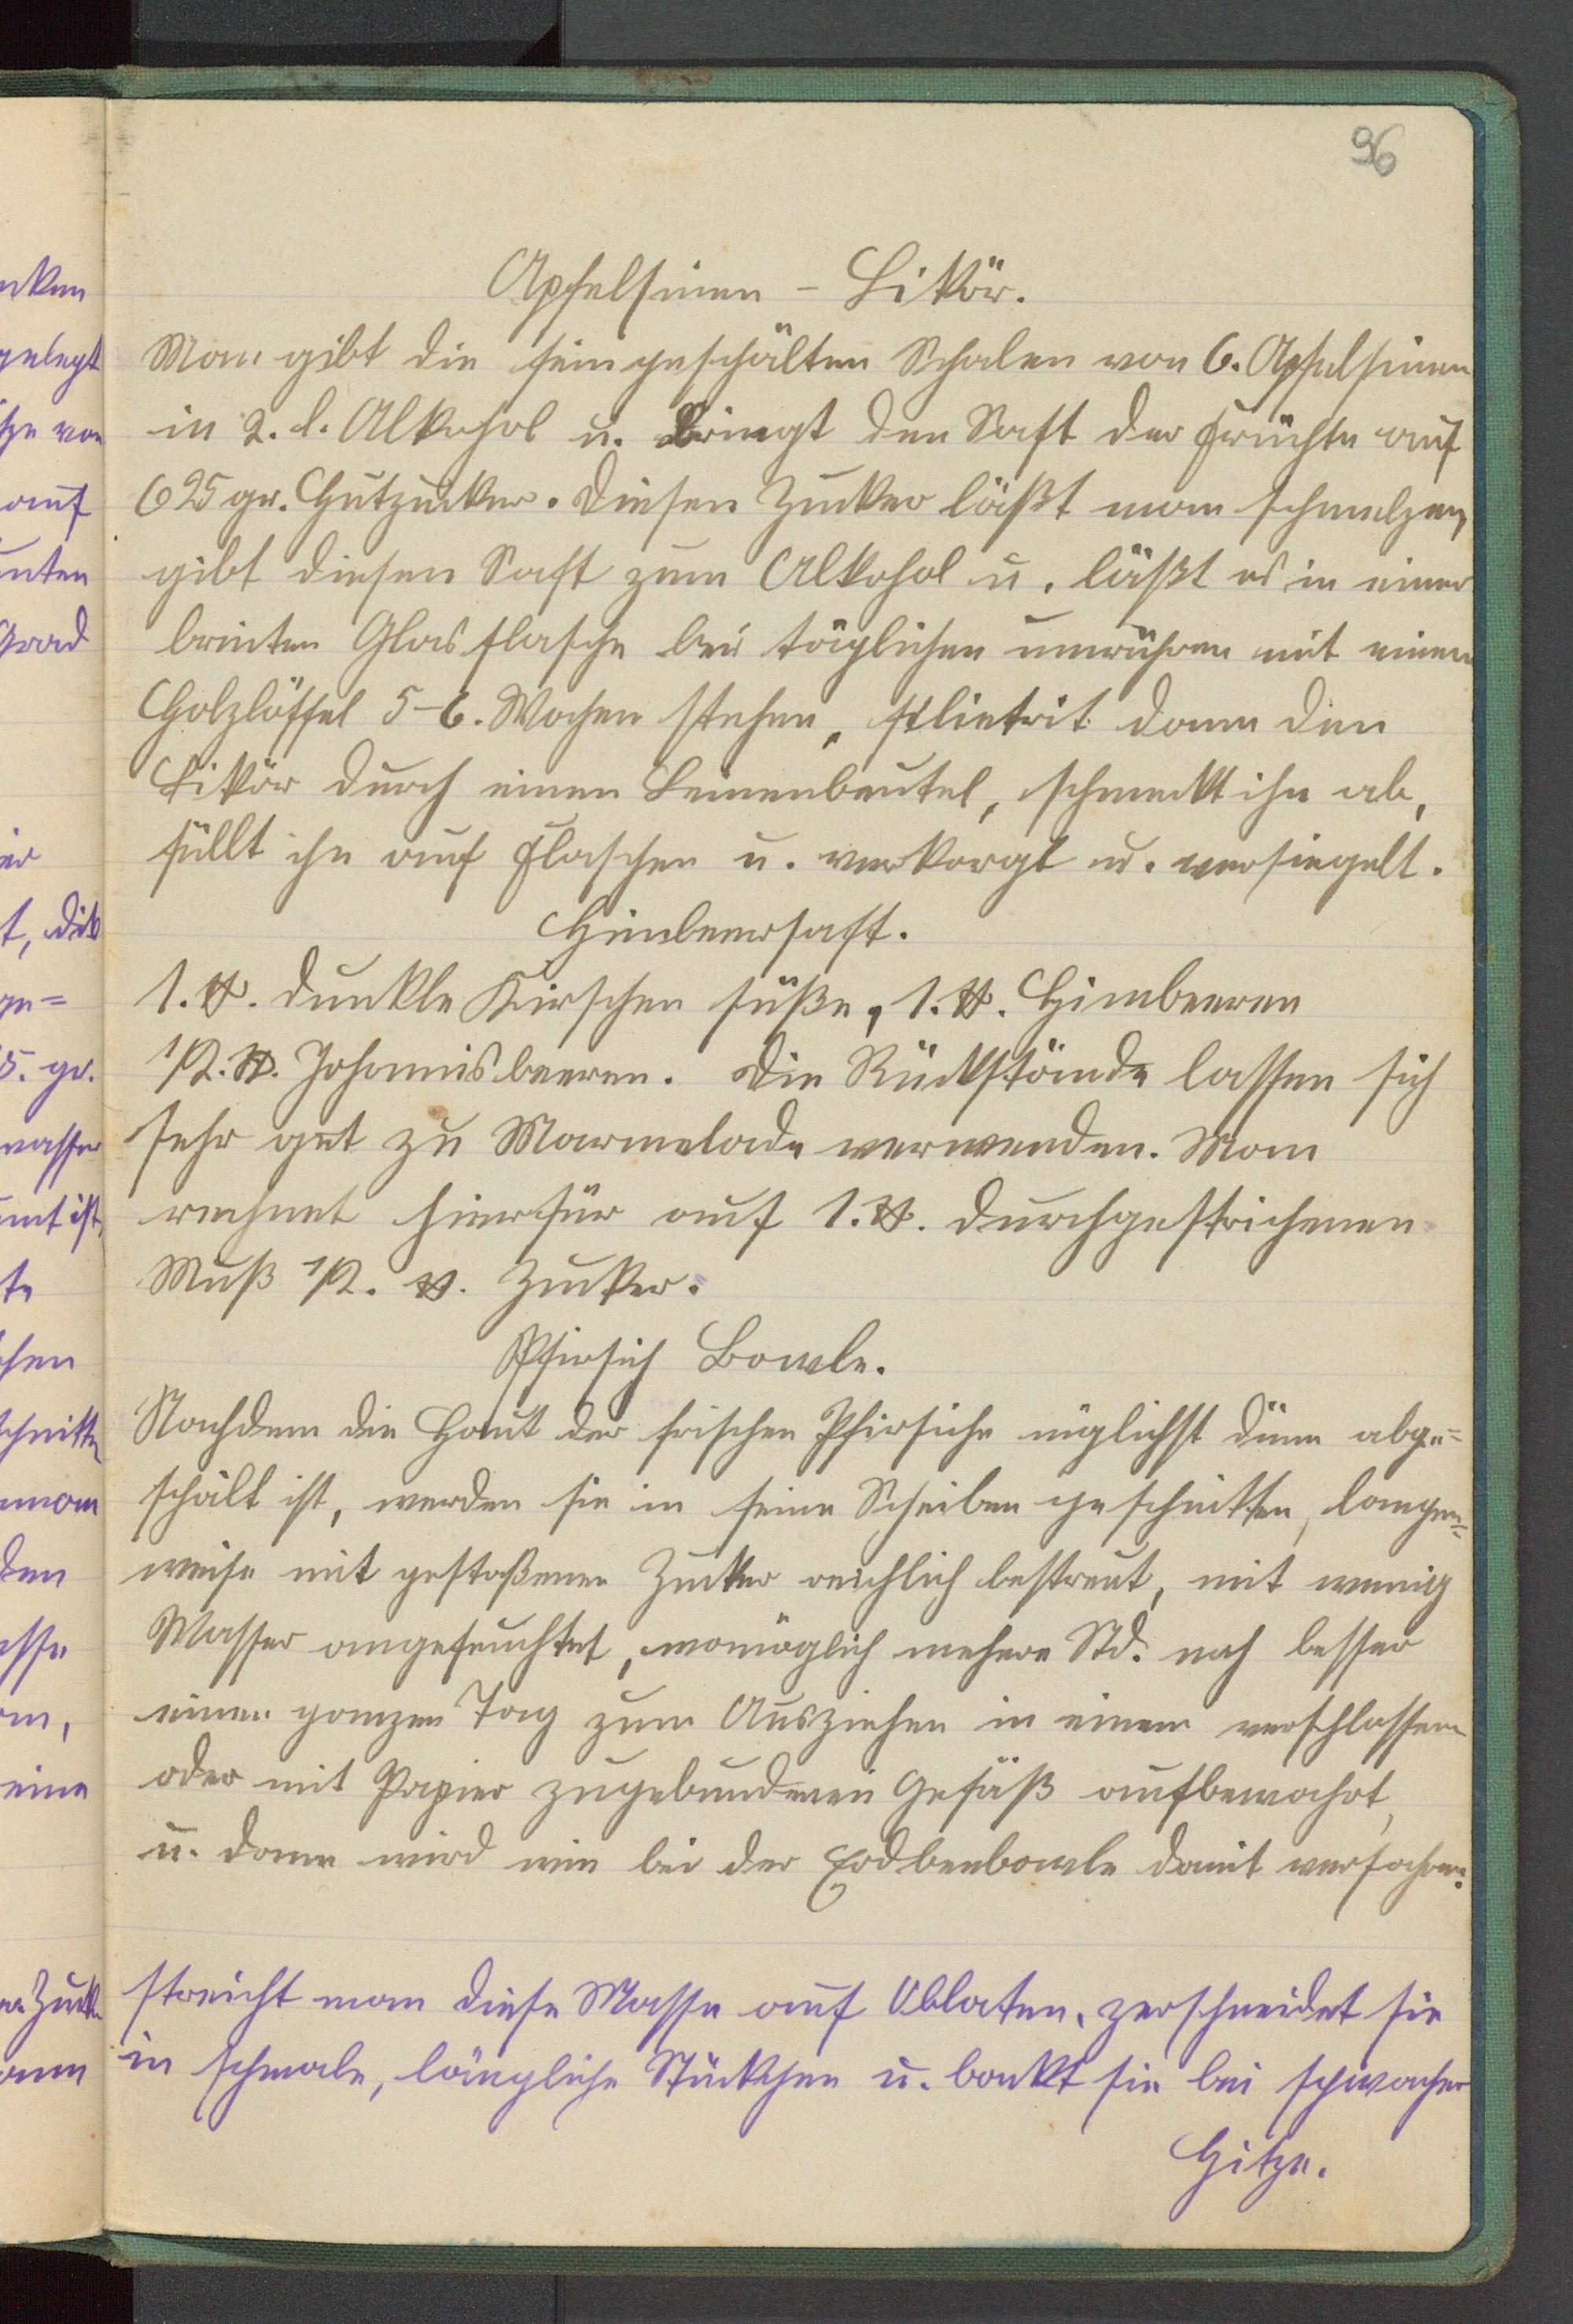 96
Apfelsinen - Likör.
Man gibt die feingeschälten Schalen von 6. Apfelsinen
in 2. l. Alkohol u. bringt den Saft der Früchte auf
625 gr. Hutzucker. Diesen Zucker läßt man schmelzen,
gibt diesen Saft zum Alkohol u. läßt es in einer
breiten Glasflasche bei täglichen umrühren mit einem
Holzlöffel 5-6. Wochen stehen, filietrit dann den
Likör durch einen Leinenbeutel, schmeckt ihn ab,
füllt ihn auf Flaschen u. verkorgt u. versiegelt.
Himbeersaft.
1. ℔. dunkle Kirschen süße, 1. ℔. Himbeeren
1/2. ℔. Johannisbeeren. Die Rückstände lassen sich
sehr gut zu Marmelade verwenden. Man
rechnet hierfür auf 1. ℔. durchgestrichenen
Muß 1/2. ℔. Zucker.
Pfirsich Bowle.
Nachdem die Haut der frischen Pfirsiche möglichst dünn abge=
schält ist, werden sie in feine Scheiben geschnitten, langen=
weise mit gestoßenen Zucker reichlich bestreut, mit wenig
Wasser angefeuchtet, womöglich mehere Std. noch besser
einen ganzen Tag zum Ausziehen in einem verschlossen
oder mit Papier zugebundenen Gefäß aufbewahrt,
u. dann wird wie bei der Erdbeebowle damit verfahren.
streicht man diese Masse auf Oblaten, zerschneidet sie
in schmale, längliche Stückchen u. backt sie bei schwacher
Hitze.